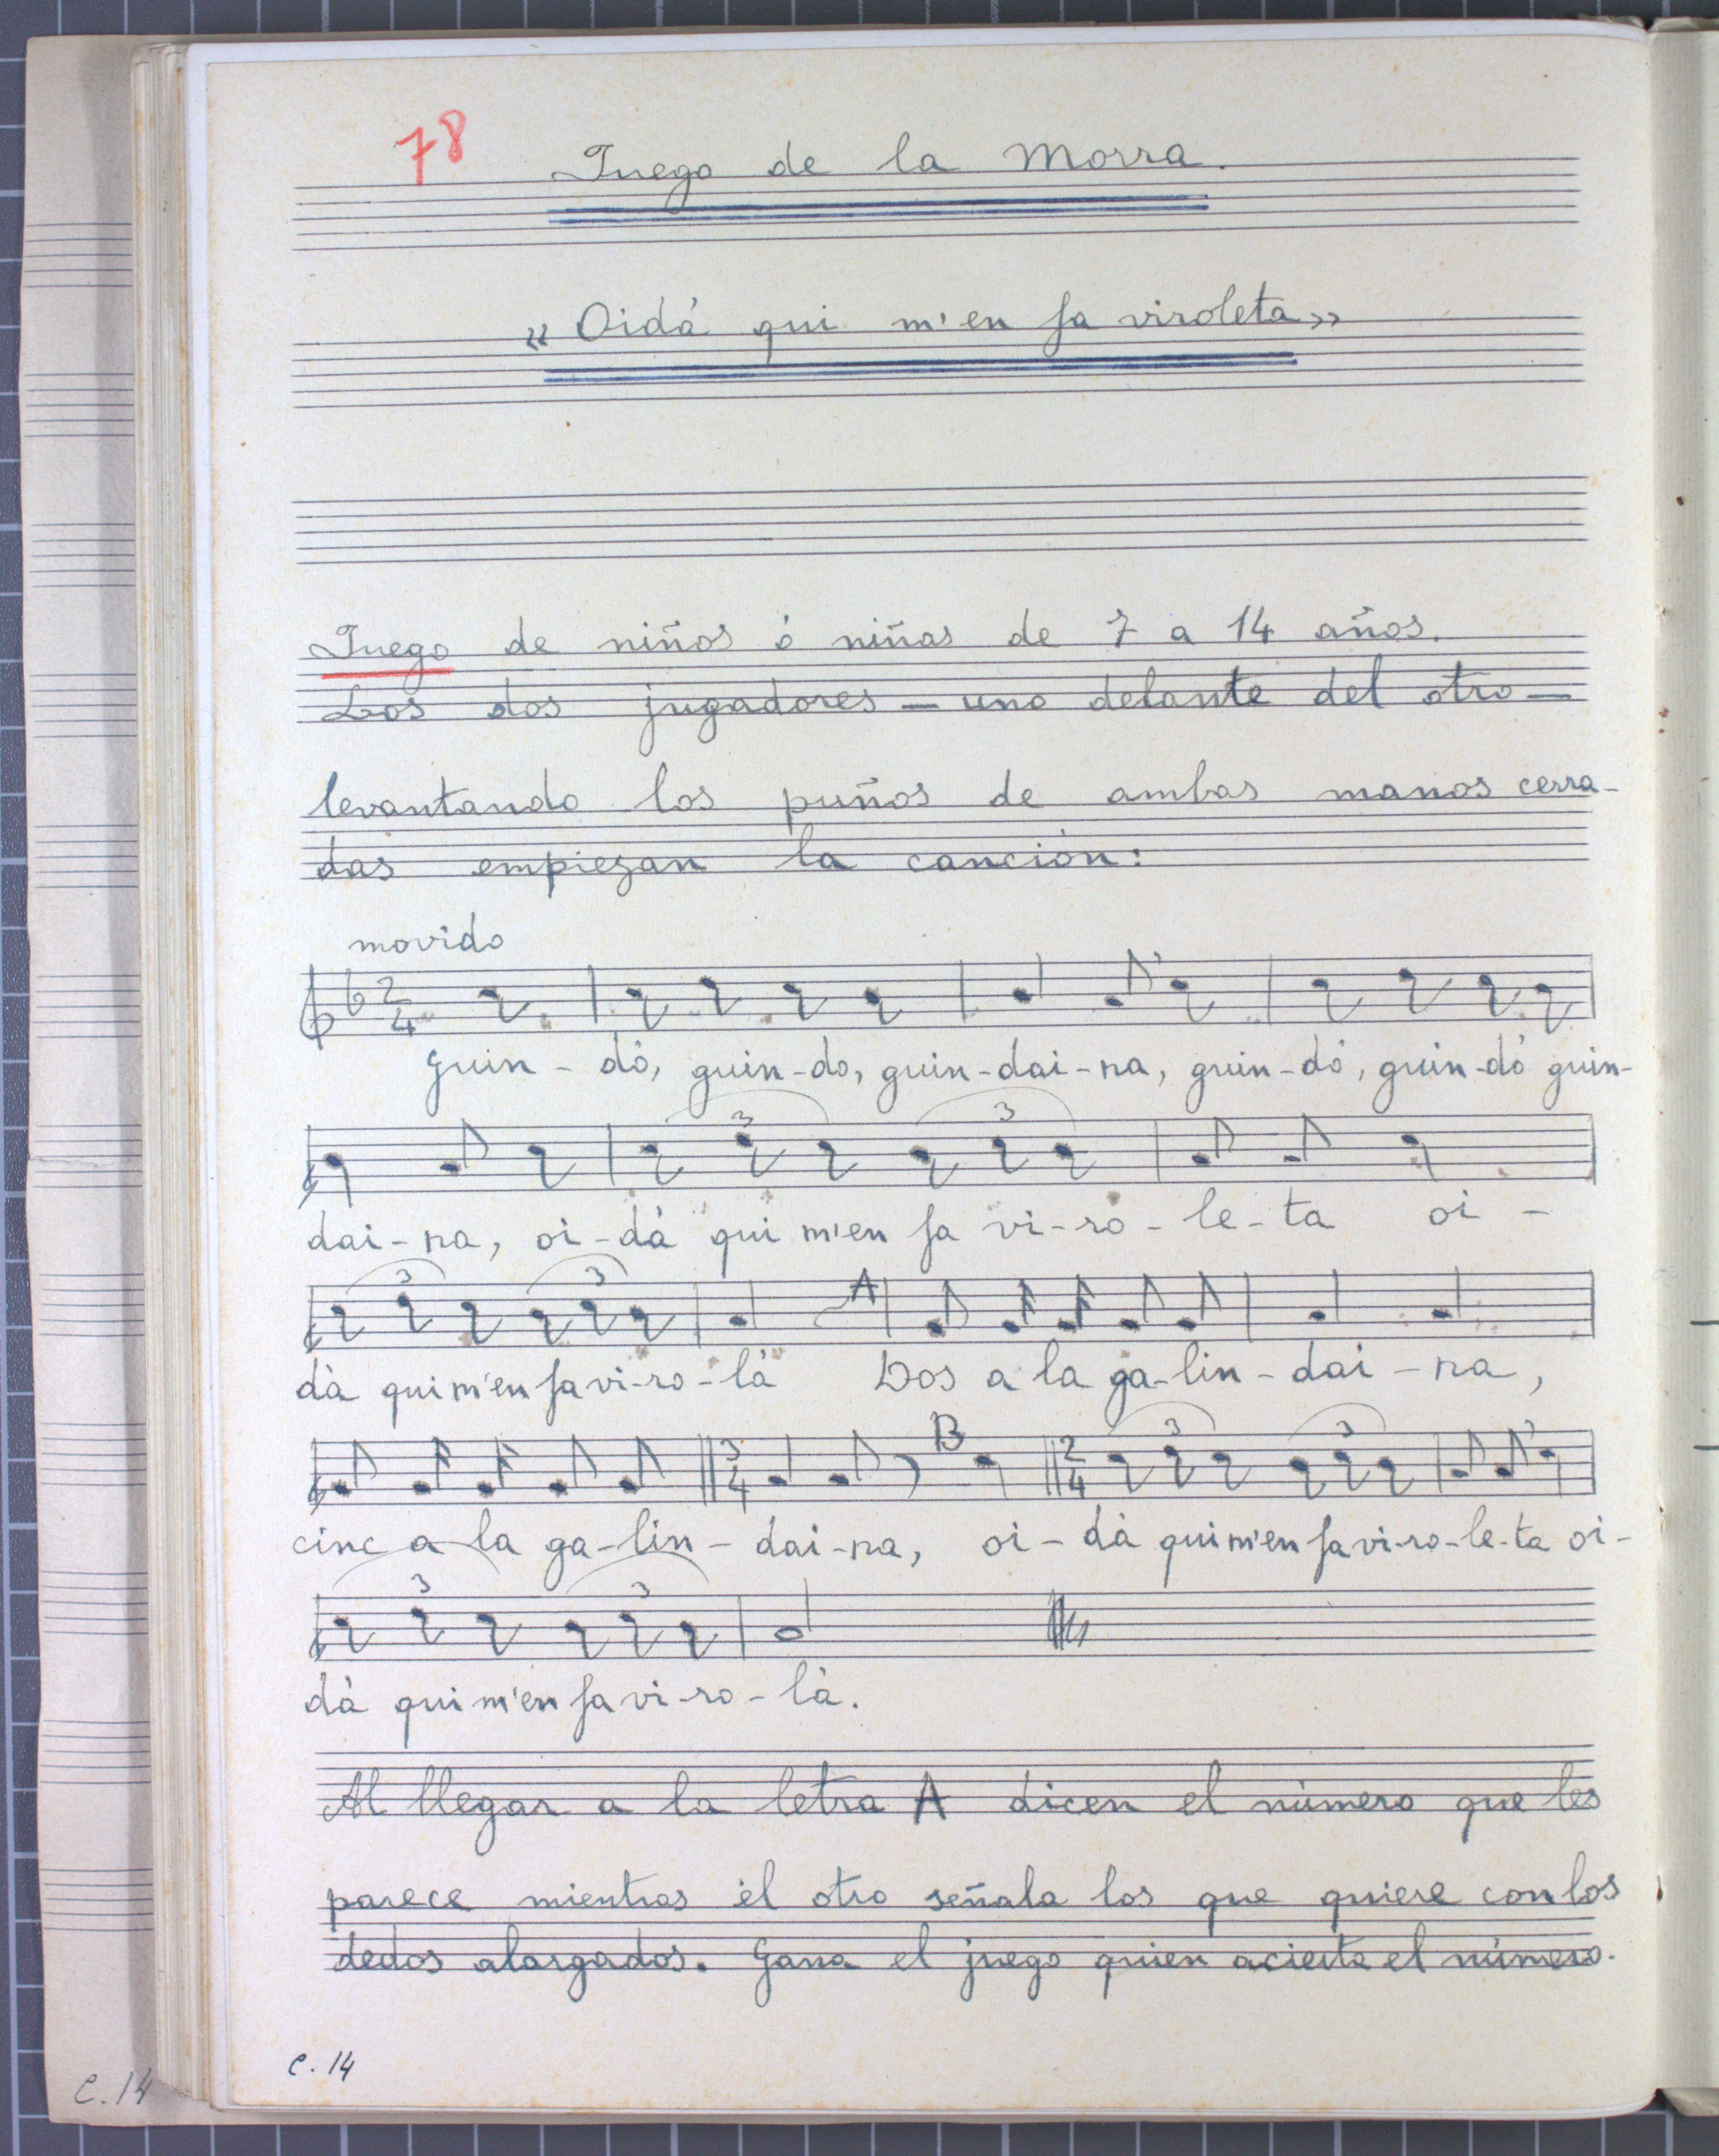 78
Juego de la Morra.
«Oidá qui m'en fa viroleta»
Juego de niños ó niñas de 7 a 14 años.
Los dos jugadores — uno delante del otro —
levantando los puños de ambas manos cerra-
das empiezan la canción:
movido
2/4
Guin - dó, guin-do, guin-dai-na, guin-dó, guin-dó guin-
3 3
dai-na, oi-dà qui m'en fa vi-ro-le-ta oi -
3 3 A
dà qui m'en fa vi-ro-là Dos a la ga-lin-dai-na,
3/4 B 2/4 3 3
cinc a la ga-lin-dai-na, oi-dà qui m'en fa vi-ro-le-ta oi-
3 3
dà qui m'en fa vi-ro-là.
Al llegar a la letra A dicen el número que les
parece mientras él otro señala los que quiere con los
dedos alargados. Gana el juego quien acierta el número.
C. 14
C. 14